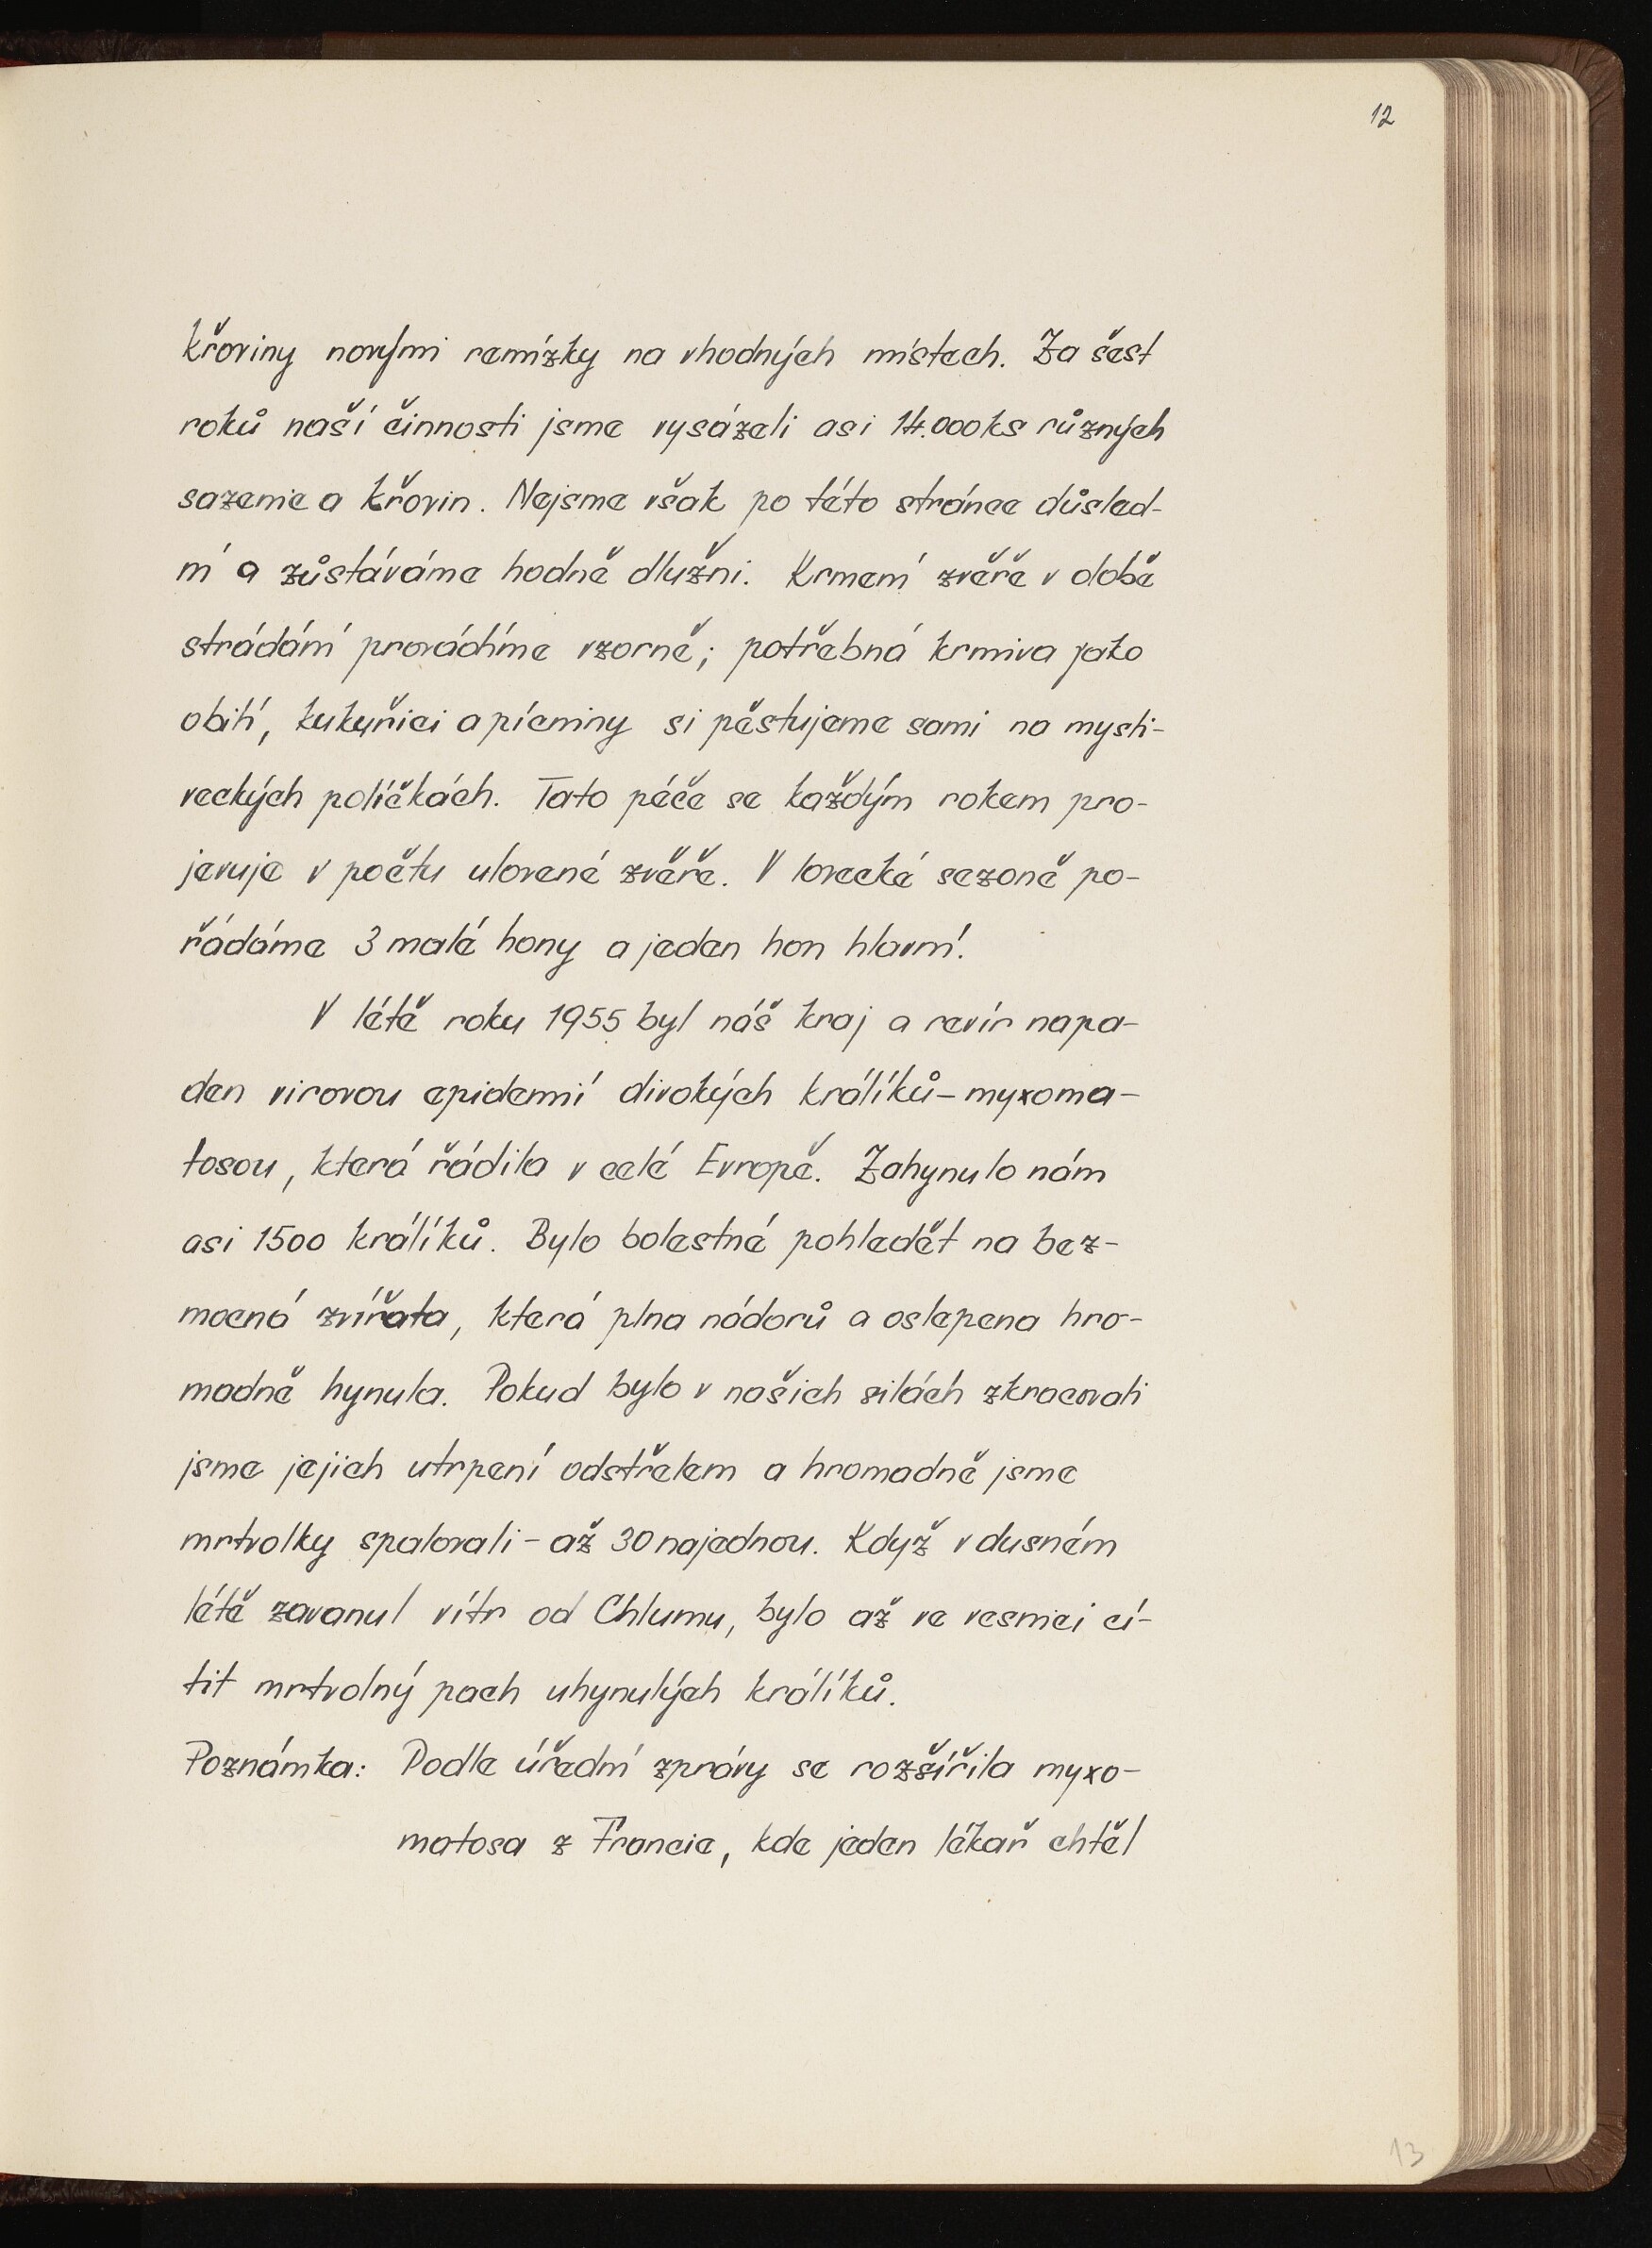 12
křoviny novými remízky na vhodných místech. Za šest
roků naší činnosti jsme vysázeli asi 14.000 ks různých
sazenic a křovin. Nejsme však po této stránce důsled-
ní a zůstáváme hodně dlužni. Krmení zvěře v době
strádání provádíme vzorně; potřebná krmiva jako
obilí, kukuřici a pícniny si pěstujeme sami na mysli-
veckých políčkách. Tato péče se každým rokem pro-
jevuje v počtu ulovené zvěře. V lovecké sezoně po-
řádáme 3 malé hony a jeden hon hlavní.
V létě roku 1955 byl náš kraj a revír napa-
den virovou epidemií divokých králíků - myxoma-
tosou, která řádila v celé Evropě. Zahynulo nám
asi 1500 králíků. Bylo bolestné pohledět na bez-
mocná zvířata, která plna nádorů a oslepena hro-
madně hynula. Pokud bylo v našich silách zkracovali
jsme jejich utrpení odstřelem a hromadně jsme
mrtvolky spalovali - až 30 najednou. Když v dusném
létě zavanul vítr od Chlumu, bylo až ve vesnici cí-
tit mrtvolný pach uhynulých králíků.
Poznámka: Podle úřední zprávy se rozšířila myxo-
matosa z Francie, kde jeden lékař chtěl
13